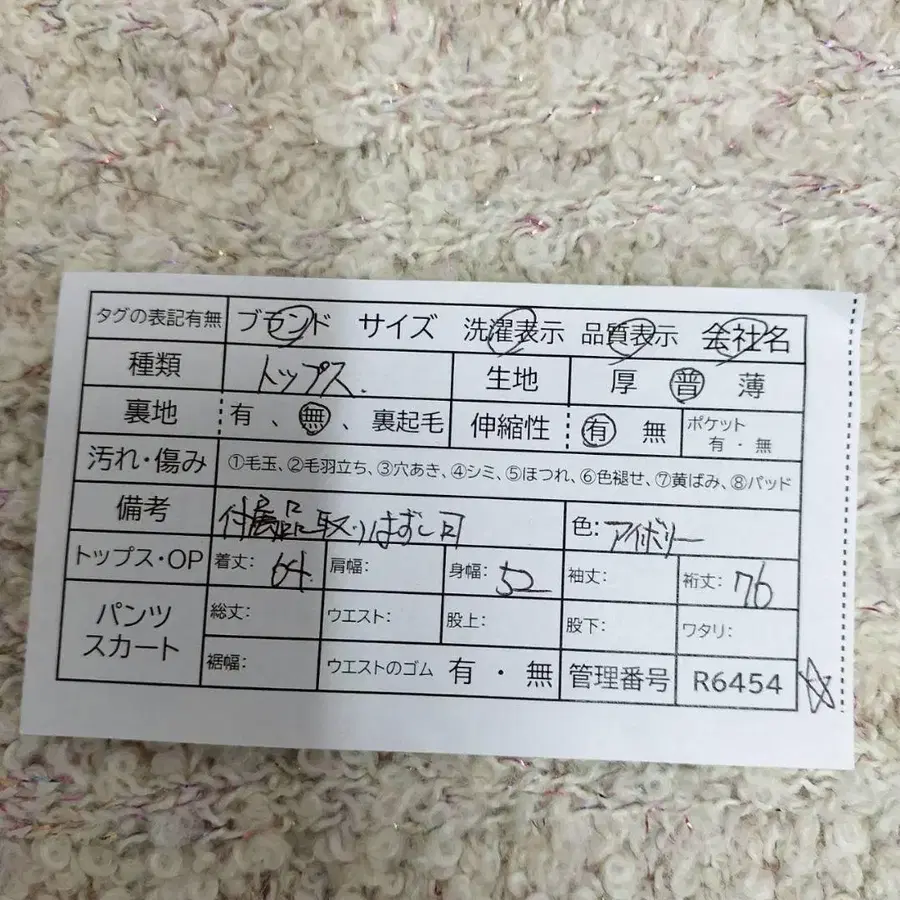 タグの表記有無 ブランド サイズ 洗濯表示 品質表示 会社名
種類 トップス. 生地 厚 普 薄
裏地 有 、 無 、 裏起毛 伸縮性 有 無 ポケット 有 ・ 無
汚れ・傷み ①毛玉、②毛羽立ち、③穴あき、④シミ、⑤ほつれ、⑥色褪せ、⑦黄ばみ、⑧パッド
備考 付属品取りはずし可 色: アイボリー
トップス・OP 着丈: 64 肩幅: 身幅: 52 袖丈: 裄丈: 76
パンツ スカート 総丈: ウエスト: 股上: 股下: ワタリ:
裾幅: ウエストのゴム 有 ・ 無 管理番号 R6454